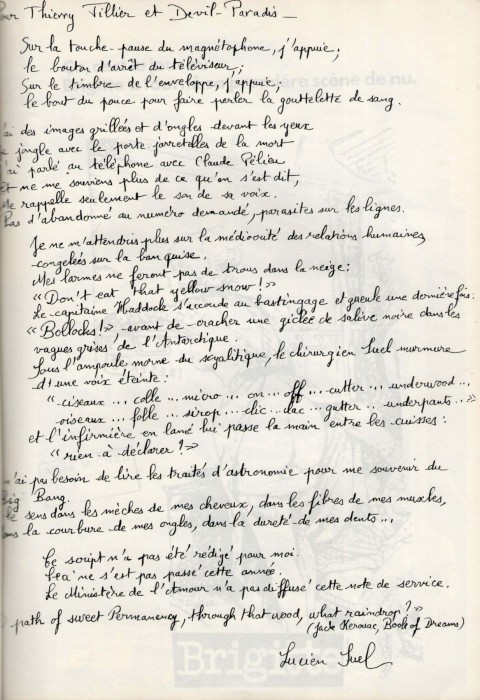 Thierry Tillier et Devil-Paradis —
Sur la touche-pause du magnétophone, j'appuie;
le bouton d'arrêt du téléviseur;
Sur le timbre de l'enveloppe, j'appuie;
le bout du pouce pour faire perler la gouttelette de sang.
des images grillées et d'ongles devant les yeux
jongle avec le porte-jarretelles de la mort
parlé au téléphone avec Claude Pélieu
me me souviens plus de ce qu'on s'est dit,
me rappelle seulement le son de sa voix.
Pas d'abandonné au numéro demandé, parasites sur les lignes.
Je ne m'attendris plus sur la médiocrité des relations humaines
congelées sur la banquise.
Mes larmes ne feront pas de trous dans la neige:
"Don't eat that yellow snow!"
Le capitaine Haddock s'accoude au bastingage et gueule une dernière fois:
"Bollocks!" avant de cracher une giclée de salive noire dans les
vagues grises de l'Antarctique.
Sous l'ampoule morne du scyalitique, le chirurgien Suel murmure
d'une voix éteinte:
"ciseaux... colle... micro... on... off... cutter... underwood...,
oiseaux... folle... sirop... clic... clac... gutter... underpants..."
et l'infirmière en lamé lui passe la main entre les cuisses:
"rien à déclarer?"
j'ai pas besoin de lire les traités d'astronomie pour me souvenir du
Big Bang.
le sens dans les mèches de mes cheveux, dans les fibres de mes muscles,
la courbure de mes ongles, dans la dureté de mes dents...
Ce script n'a pas été rédigé pour moi.
ne s'est pas passé cette année.
Le Ministère de l'Amour n'a pas diffusé cette note de service.
path of sweet Permanency, through that wood, what raindrop?"
(Jack Kerouac, Book of Dreams)
Lucien Suel
Brigitte
ière scène de nu.